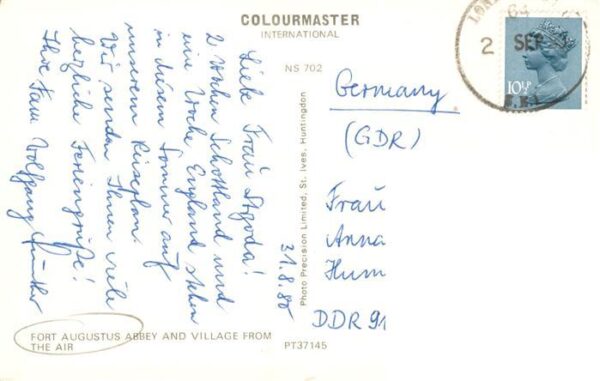 COLOURMASTER
INTERNATIONAL
NS 702
Liebe Frau
2 Wochen Schottland und
eine Woche England stehen
in diesem Sommer auf
unserem Reiseplan.
Wir senden Ihnen viele
herzliche Feriengrüße!
Ihre Fam. Wolfgang Günther
31.8.80
Photo Precision Limited, St. Ives, Huntingdon
FORT AUGUSTUS ABBEY AND VILLAGE FROM
THE AIR
PT37145
2 SEP
10½P
Germany
(GDR)
Frau
Anna
Hum
DDR 91